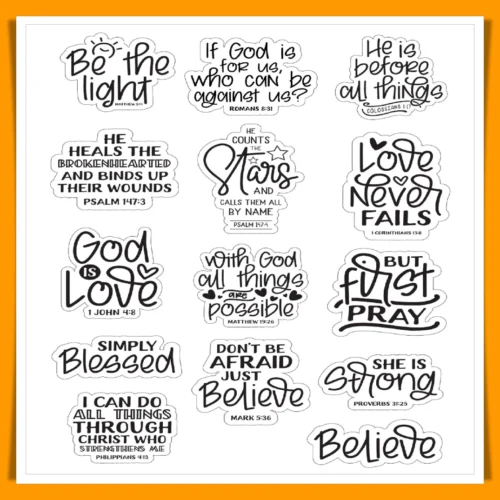 Be the
light
MATTHEW 5:14
If God is
for us,
who can be
against us?
ROMANS 8:31
He is
before
all things
COLOSSIANS 1:17
HE
HEALS THE
BROKENHEARTED
AND BINDS UP
THEIR WOUNDS
PSALM 147:3
HE
COUNTS
THE
Stars
AND
CALLS THEM ALL
BY NAME
PSALM 147:4
Love
Never
FAILS
1 CORINTHIANS 13:8
God
IS
Love
1 JOHN 4:8
with God
all things
are
possible
MATTHEW 19:26
BUT
first
PRAY
SIMPLY
Blessed
DON'T BE
AFRAID
JUST
Believe
MARK 5:36
SHE IS
Strong
PROVERBS 31:25
I CAN DO
ALL THINGS
THROUGH
CHRIST WHO
STRENGTHENS ME
PHILIPPIANS 4:13
Believe